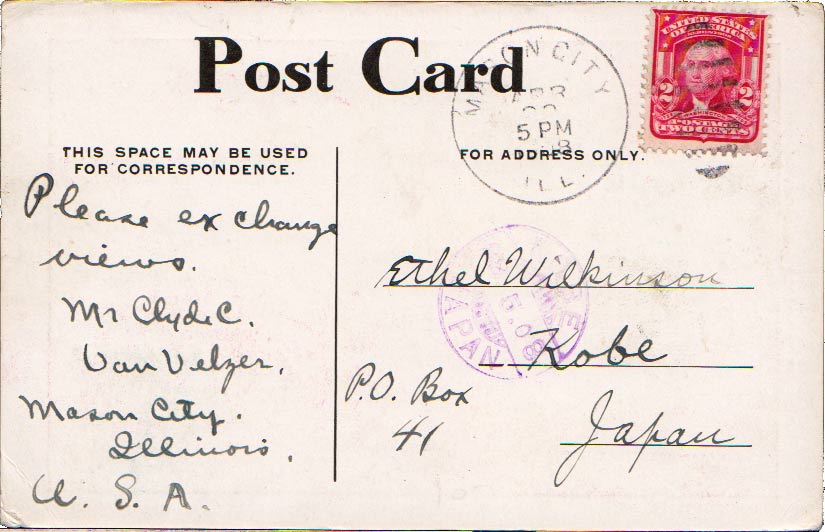 Post Card
THIS SPACE MAY BE USED
FOR CORRESPONDENCE.
FOR ADDRESS ONLY.
MASON CITY
APR
5 PM
ILL.
UNITED STATES
OF AMERICA
2 2
POSTAGE
TWO CENTS
Please exchange
views.
Mr Clyde C.
Van Velzer,
Mason City.
Illinois,
U. S. A.
Ethel Wilkinson
Kobe
P.O. Box
41
Japan
KOBE
5.08
JAPAN